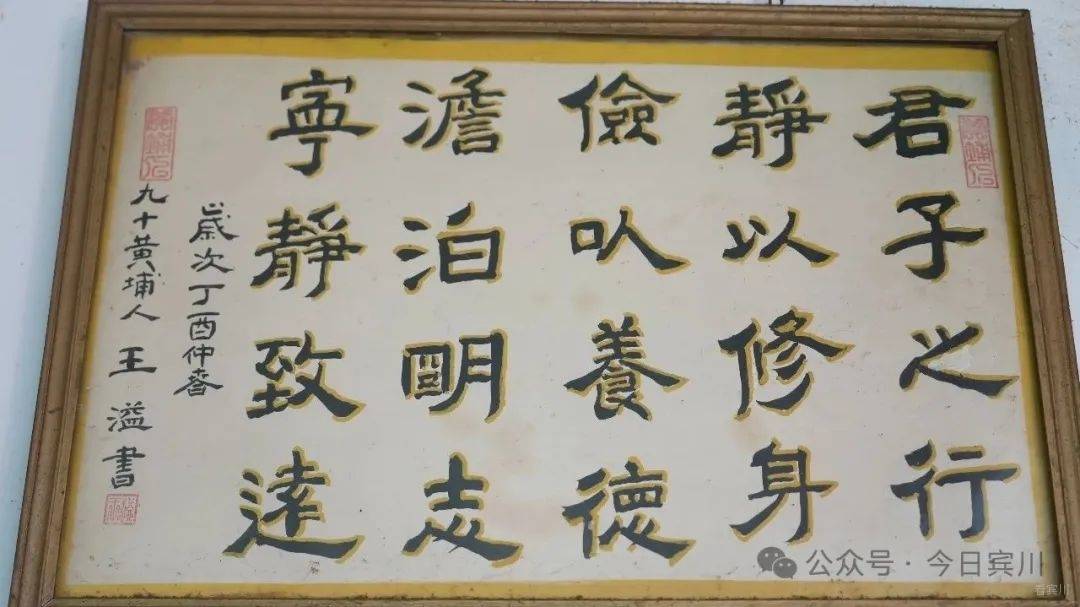 君子之行
靜以修身
儉㕥養德
澹泊明志
寧靜致遠
歲次丁酉仲春
九十黃埔人 王溢書
公众号 · 今日宾川
看宾川